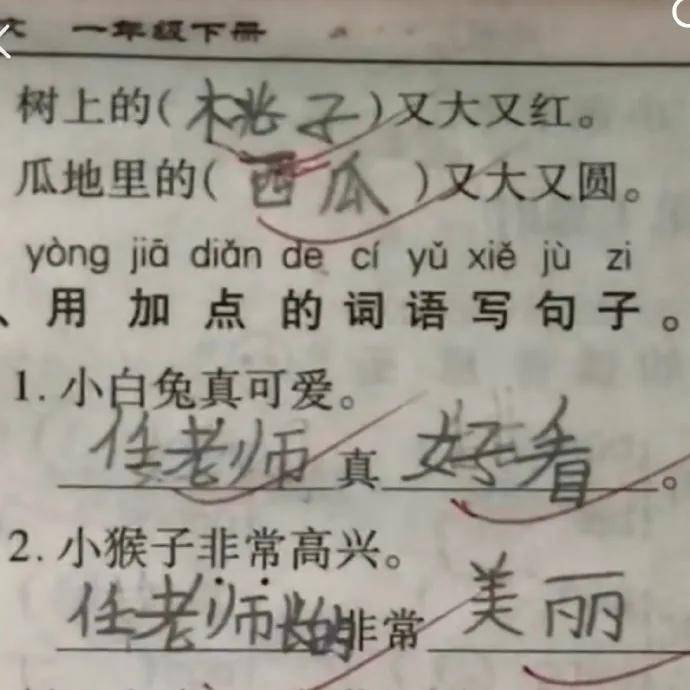 一年级下册
树上的(桃子)又大又红。
瓜地里的(西瓜)又大又圆。
yòng jiā diǎn de cí yǔ xiě jù zi
、用加点的词语写句子。
1. 小白兔真可爱。
任老师真好看。
2. 小猴子非常高兴。
任老师长的非常美丽